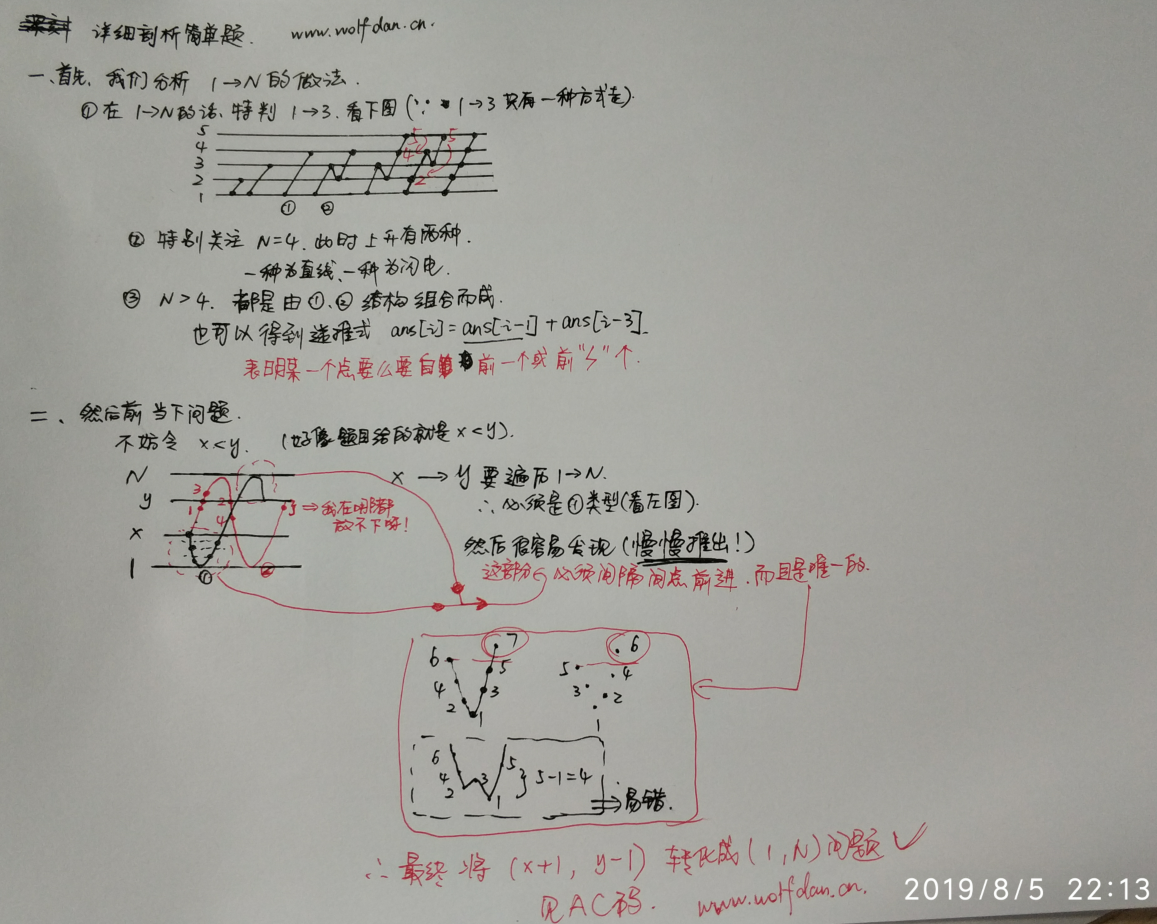 详细剖析简单题. www.wolfdan.cn.
一、首先,我们分析 1→N的做法.
①在 1→N的话,特判 1→3.看下图(∵ 1→3 只有一种方式走).
5
4
3
2
1
5 5
4
2
① ②
② 特别关注 N=4.此时上升有两种.
一种为直线、一种为闪电.
③ N>4. 都是由①、②结构组合而成.
也可以得到递推式 ans[i]=ans[i-1]+ans[i-3]
表明某一个点要么要自 前一个或前"ㄣ"个.
二、然后前当下问题.
不妨令 x<y. (好像题目给的就是x<y).
N
y
x
1
3
1
2
4
5→我在哪都放不下呀!
① ②
x → y 要遍历 1→N.
∴必须是①类型(看左图).
然后很容易发现(慢慢推出!)
这部分 必须间隔间点前进.而且是唯一的.
6 7
4 5
2 3
1
6
5 4
3 2
1
6 5
4 3
2 1
} 5-1=4
⇒易错.
∴最终将 (x+1, y-1) 转化成(1,N)问题✓
见AC码. www.wolfdan.cn.
2019/8/5 22:13